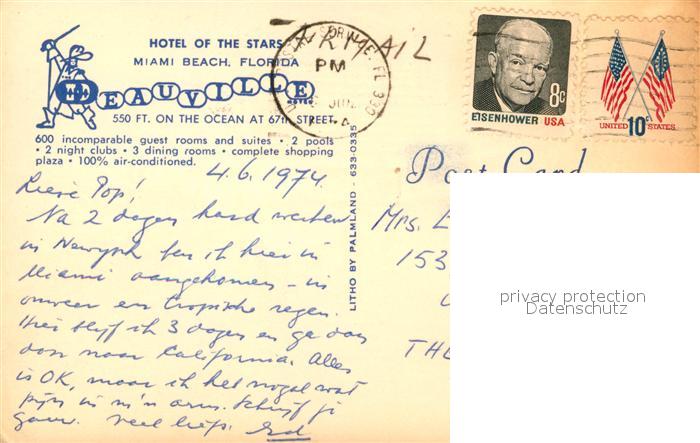 HOTEL OF THE STARS
MIAMI BEACH, FLORIDA
DEAUVILLE
HOTEL
550 FT. ON THE OCEAN AT 67TH STREET
600 incomparable guest rooms and suites • 2 pools
• 2 night clubs • 3 dining rooms • complete shopping
plaza • 100% air-conditioned.
AIR MAIL
PM
EISENHOWER USA
8c
UNITED STATES
10c
Post Card
LITHO BY PALMLAND - 633-0335
4.6.1974.
Lieve Pop!
Na 2 dagen hard werken
in Newyork ben ik hier in
Miami aangekomen - in
onweer en tropische regen.
Hier blijf ik 3 dagen en ga dan
door naar California. Alles
is OK, maar ik heb nogal wat
pijn in m'n arm. Schrijf je
gauw. veel liefs.
Mrs.
153
THE
privacy protection
Datenschutz